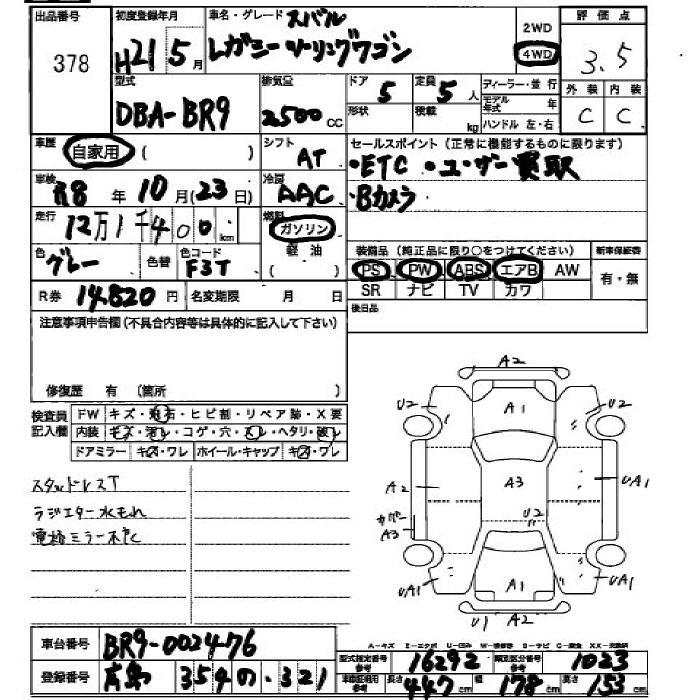 出品番号
378
初度登録年月
H21 5月
車名・グレード スバル
レガシーツーリングワゴン
2WD
4WD
評価点
3.5
外装 内装
C C
型式
DBA-BR9
排気量
2500 CC
ドア 5
定員 5人
形状
積載 kg
ディーラー・並行
モデル年式 年
ハンドル 左・右
車歴
自家用 ( )
シフト
AT
セールスポイント (正常に機能するものに限ります)
・ETC ・ユーザー買取
・Bカメラ
車検
R8年10月(23日)
冷房
AAC
走行
12万1千400km
燃料
ガソリン
軽油
色 グレー
色替
色コード F3T
装備品 (純正品に限り○をつけてください)
新車保証書
PS PW ABS エアB AW
SR ナビ TV カワ
有・無
R券 14,820円
名変期限 月 日
後日品
注意事項申告欄(不具合内容等は具体的に記入して下さい)
修復歴 有 (箇所 )
検査員
記入欄
FW キズ・飛石・ヒビ割・リペア跡・X要
内装 キズ・汚レ・コゲ・穴・スレ・ヘタリ・破レ
ドアミラー キズ・ワレ ホイール・キャップ キズ・ワレ
スタッドレスT
ラジエター水もれ
電格ミラー不良
A2
U2 A1 U2
A2 A3 UA1
カバー
A3
U2
UA1 A1 UA1
U1 A2
A-キズ E-エクボ U-凹み W-補修跡 S-サビ C-腐食 XX-交換済
車台番号 BR9-002476
型式指定番号 参考 16292
類別区分番号 参考 1023
登録番号 354 の・321
車庫証明用 参考 長さ 447cm 幅 178cm 高さ 153cm